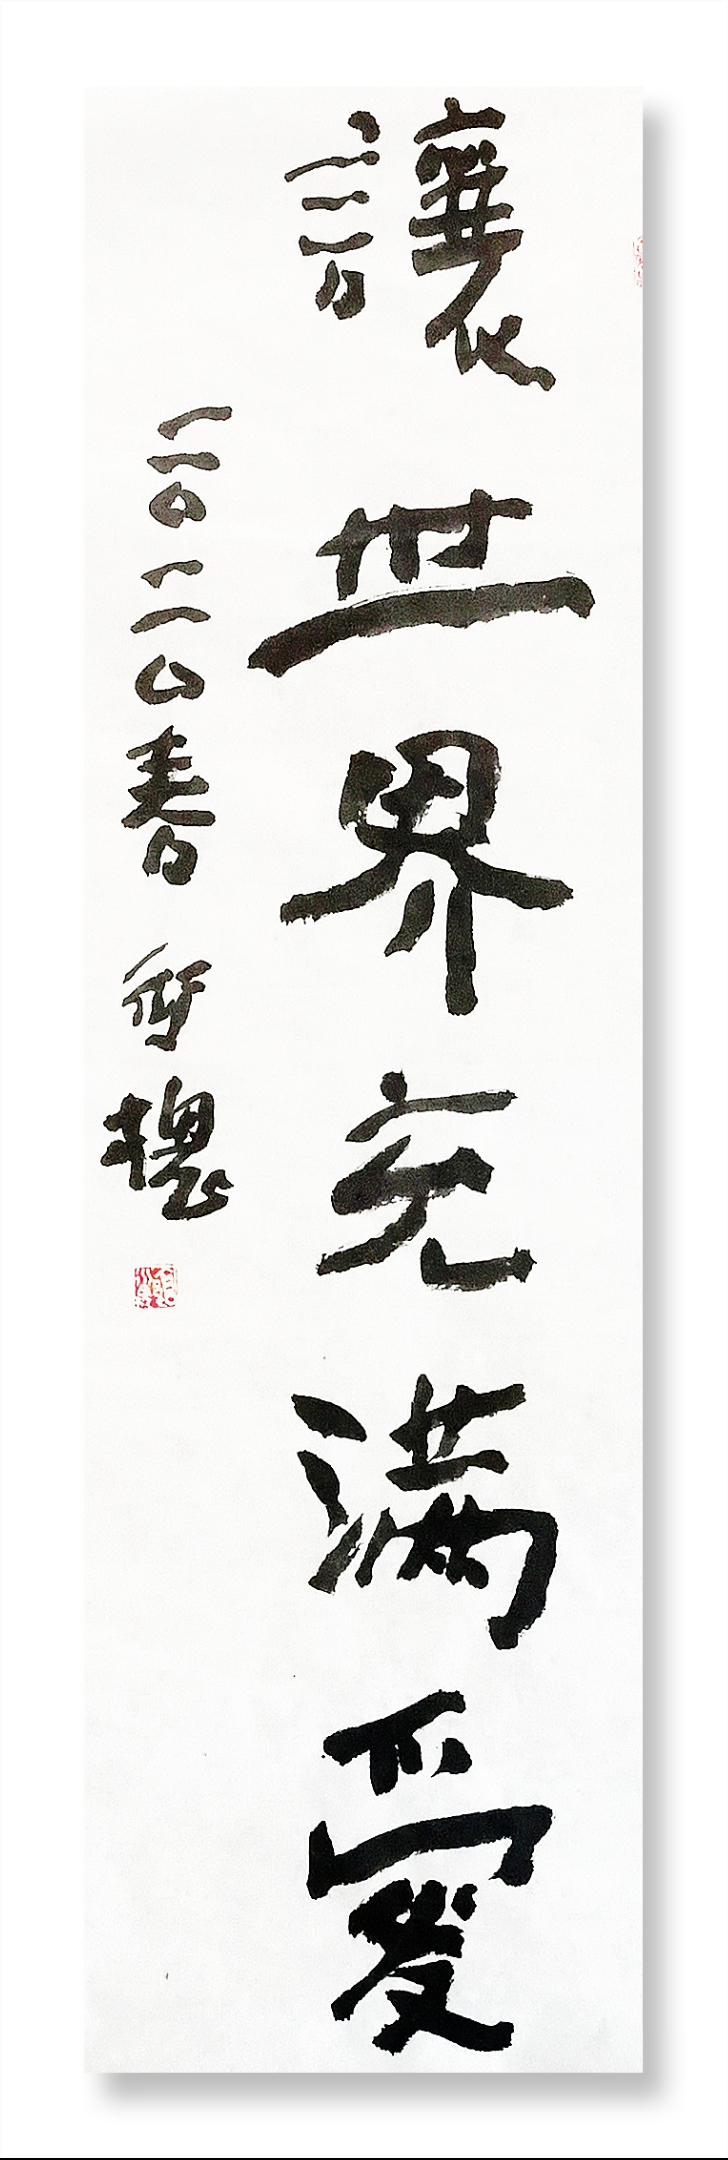 讓世界充滿愛
二〇二〇春